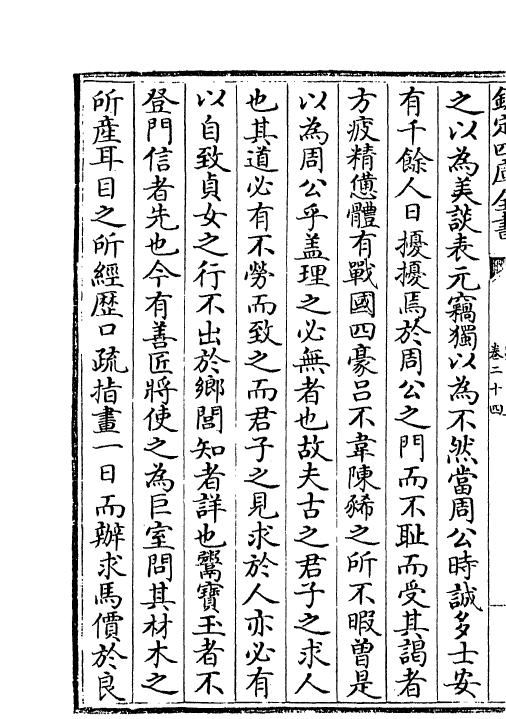 欽定四庫全書
卷二十四
之以為美談表元竊獨以為不然當周公時誠多士安
有千餘人日擾擾焉於周公之門而不耻而受其謁者
方疲精憊體有戰國四豪吕不韋陳豨之所不暇曽是
以為周公乎盖理之必無者也故夫古之君子之求人
也其道必有不勞而致之而君子之見求於人亦必有
以自致貞女之行不出於鄉閭知者詳也鬻寳玉者不
登門信者先也今有善匠將使之為巨室問其材木之
所產耳目之所經歴口疏指畫一日而辦求馬價於良